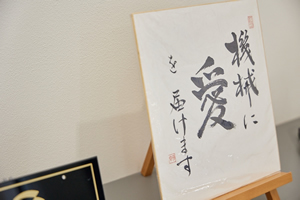 機械に
愛
を届けます